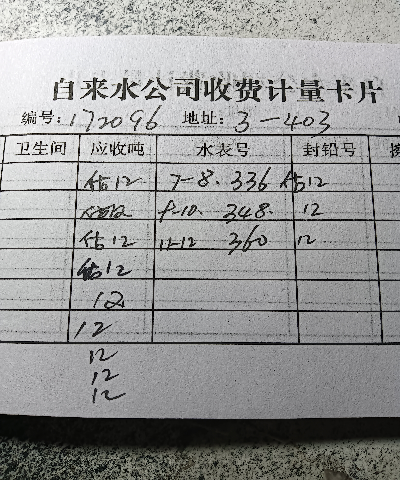 自来水公司收费计量卡片
编号:172096 地址:3-403
卫生间 应收吨 水表号 封铅号
估12 7-8. 336 估12
9-10. 348. 12
估12 11-12 360 12
估12
12
12
12
12
12